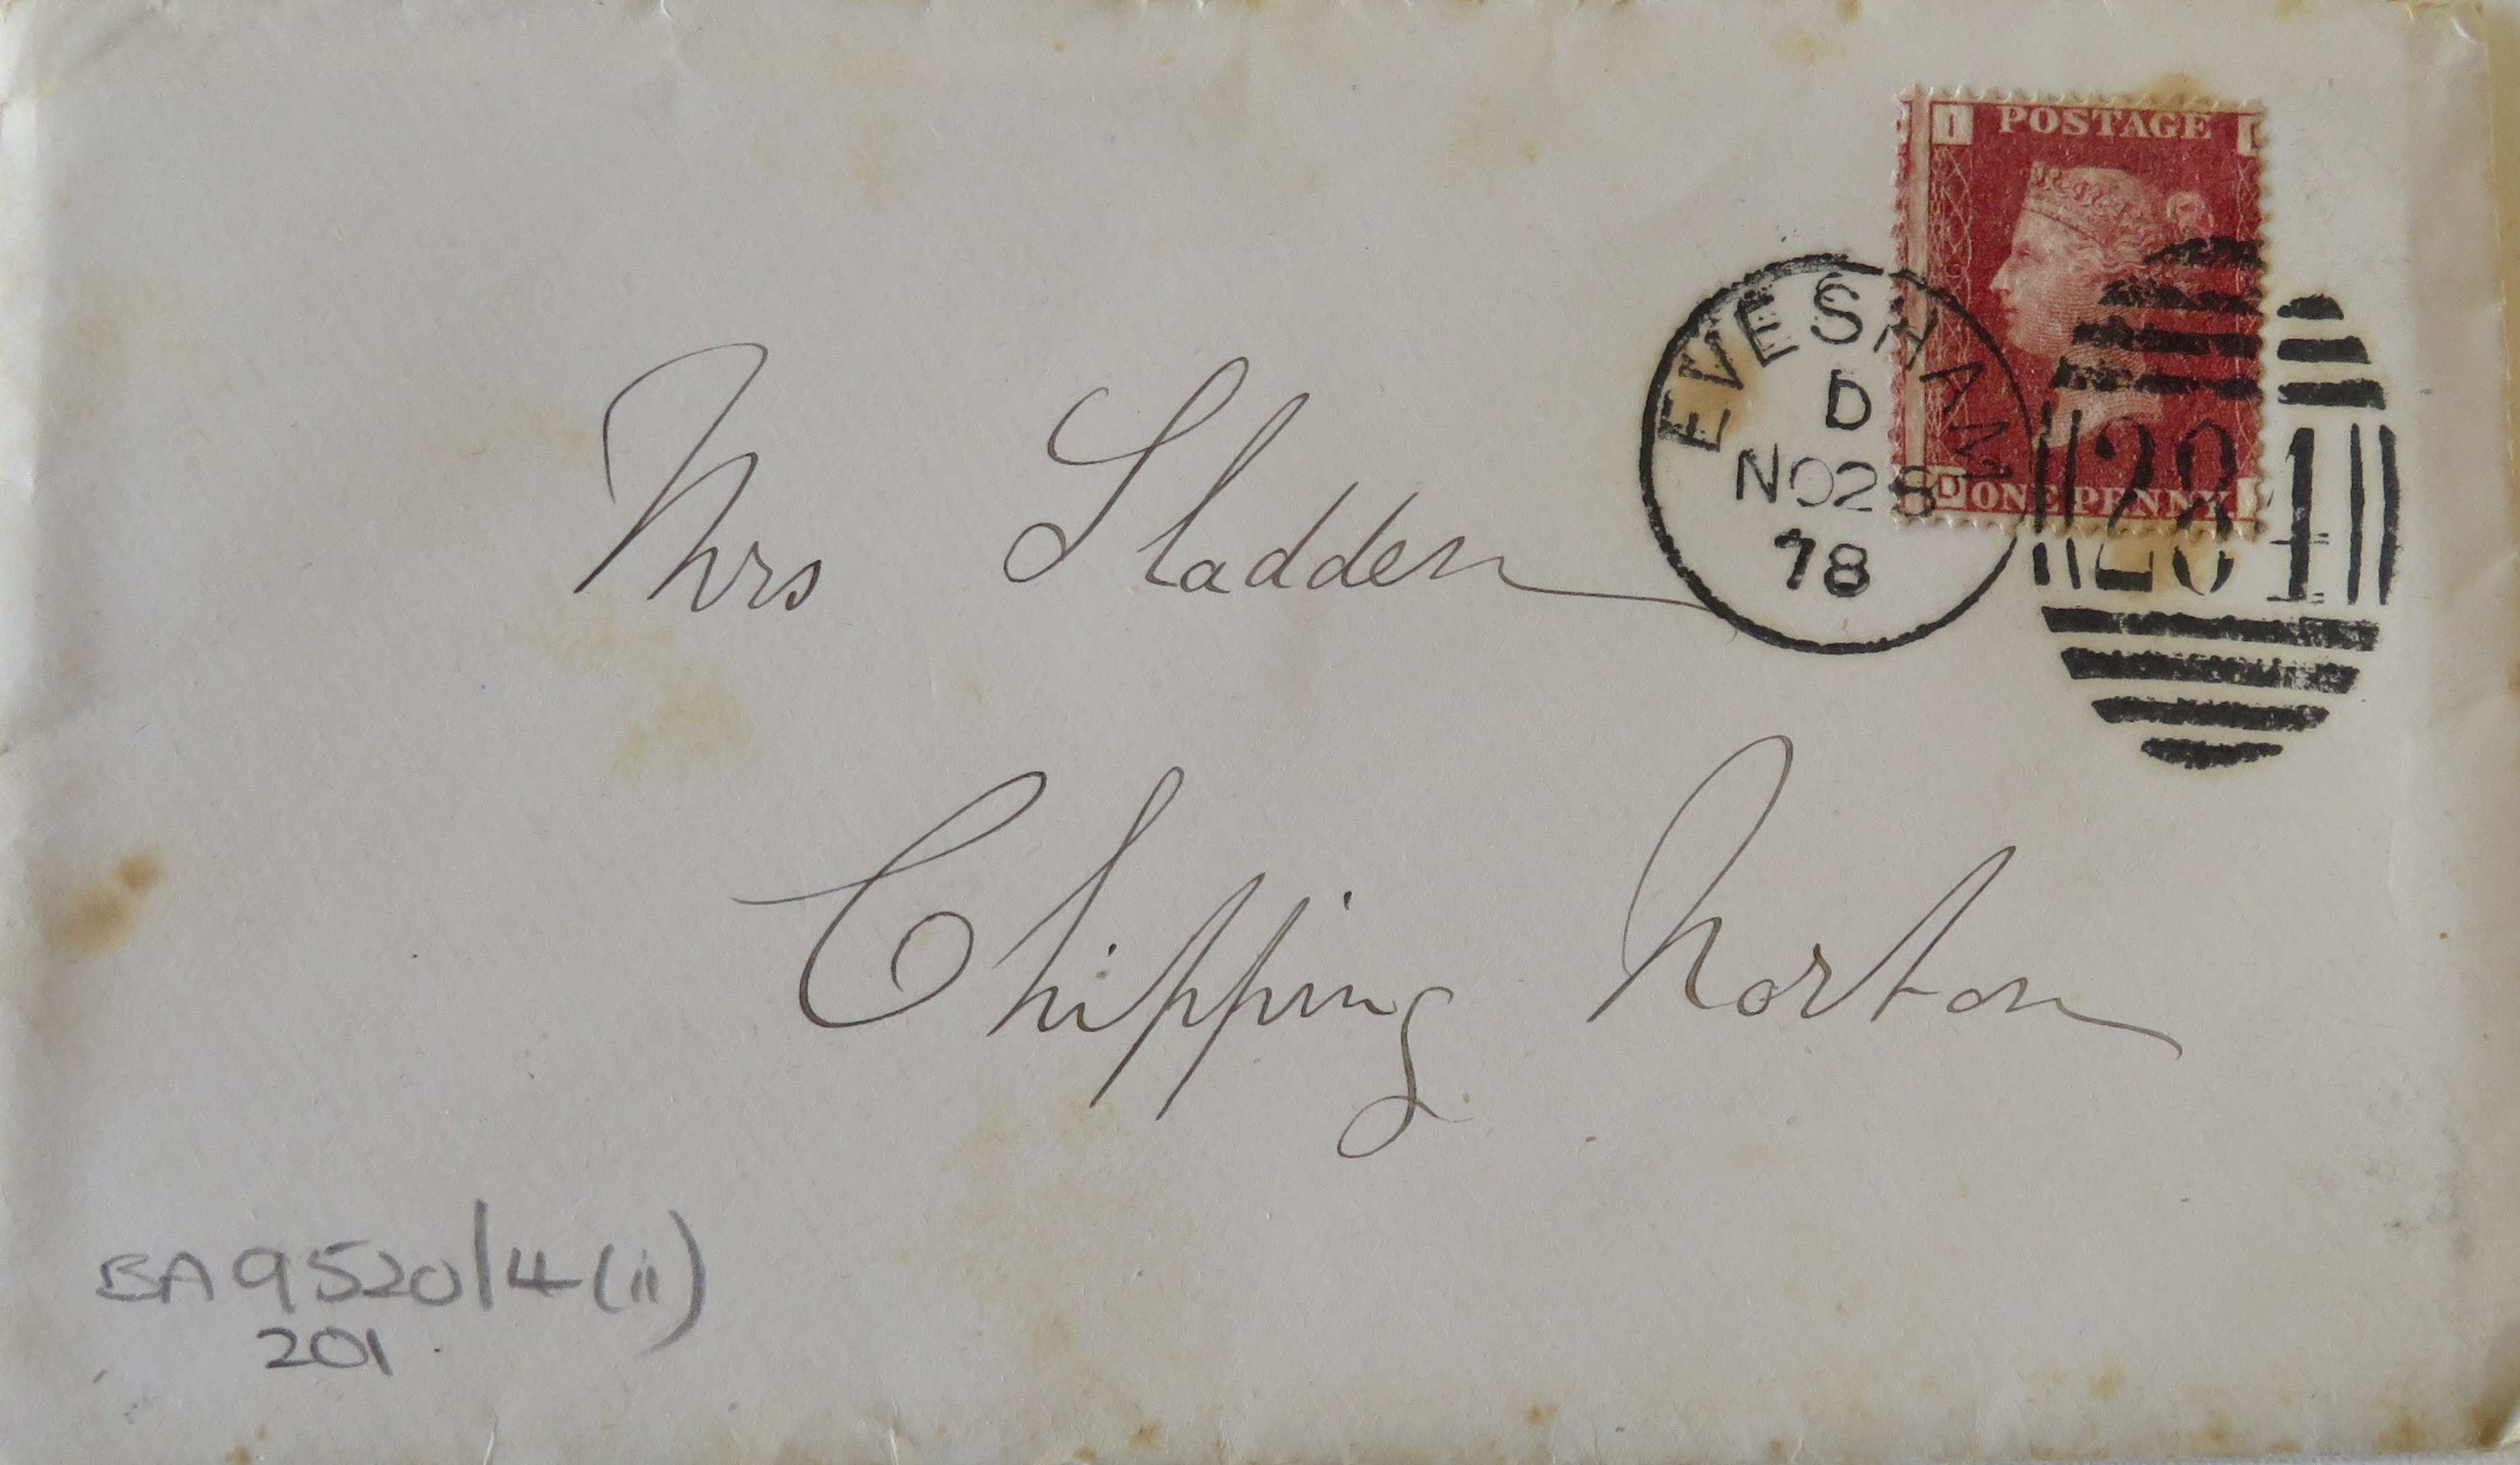 POSTAGE
EVESHAM
D
NO 28
78
284
D ONE PENNY
Mrs Sladden
Chipping Norton
BA 9520/4 (ii)
201